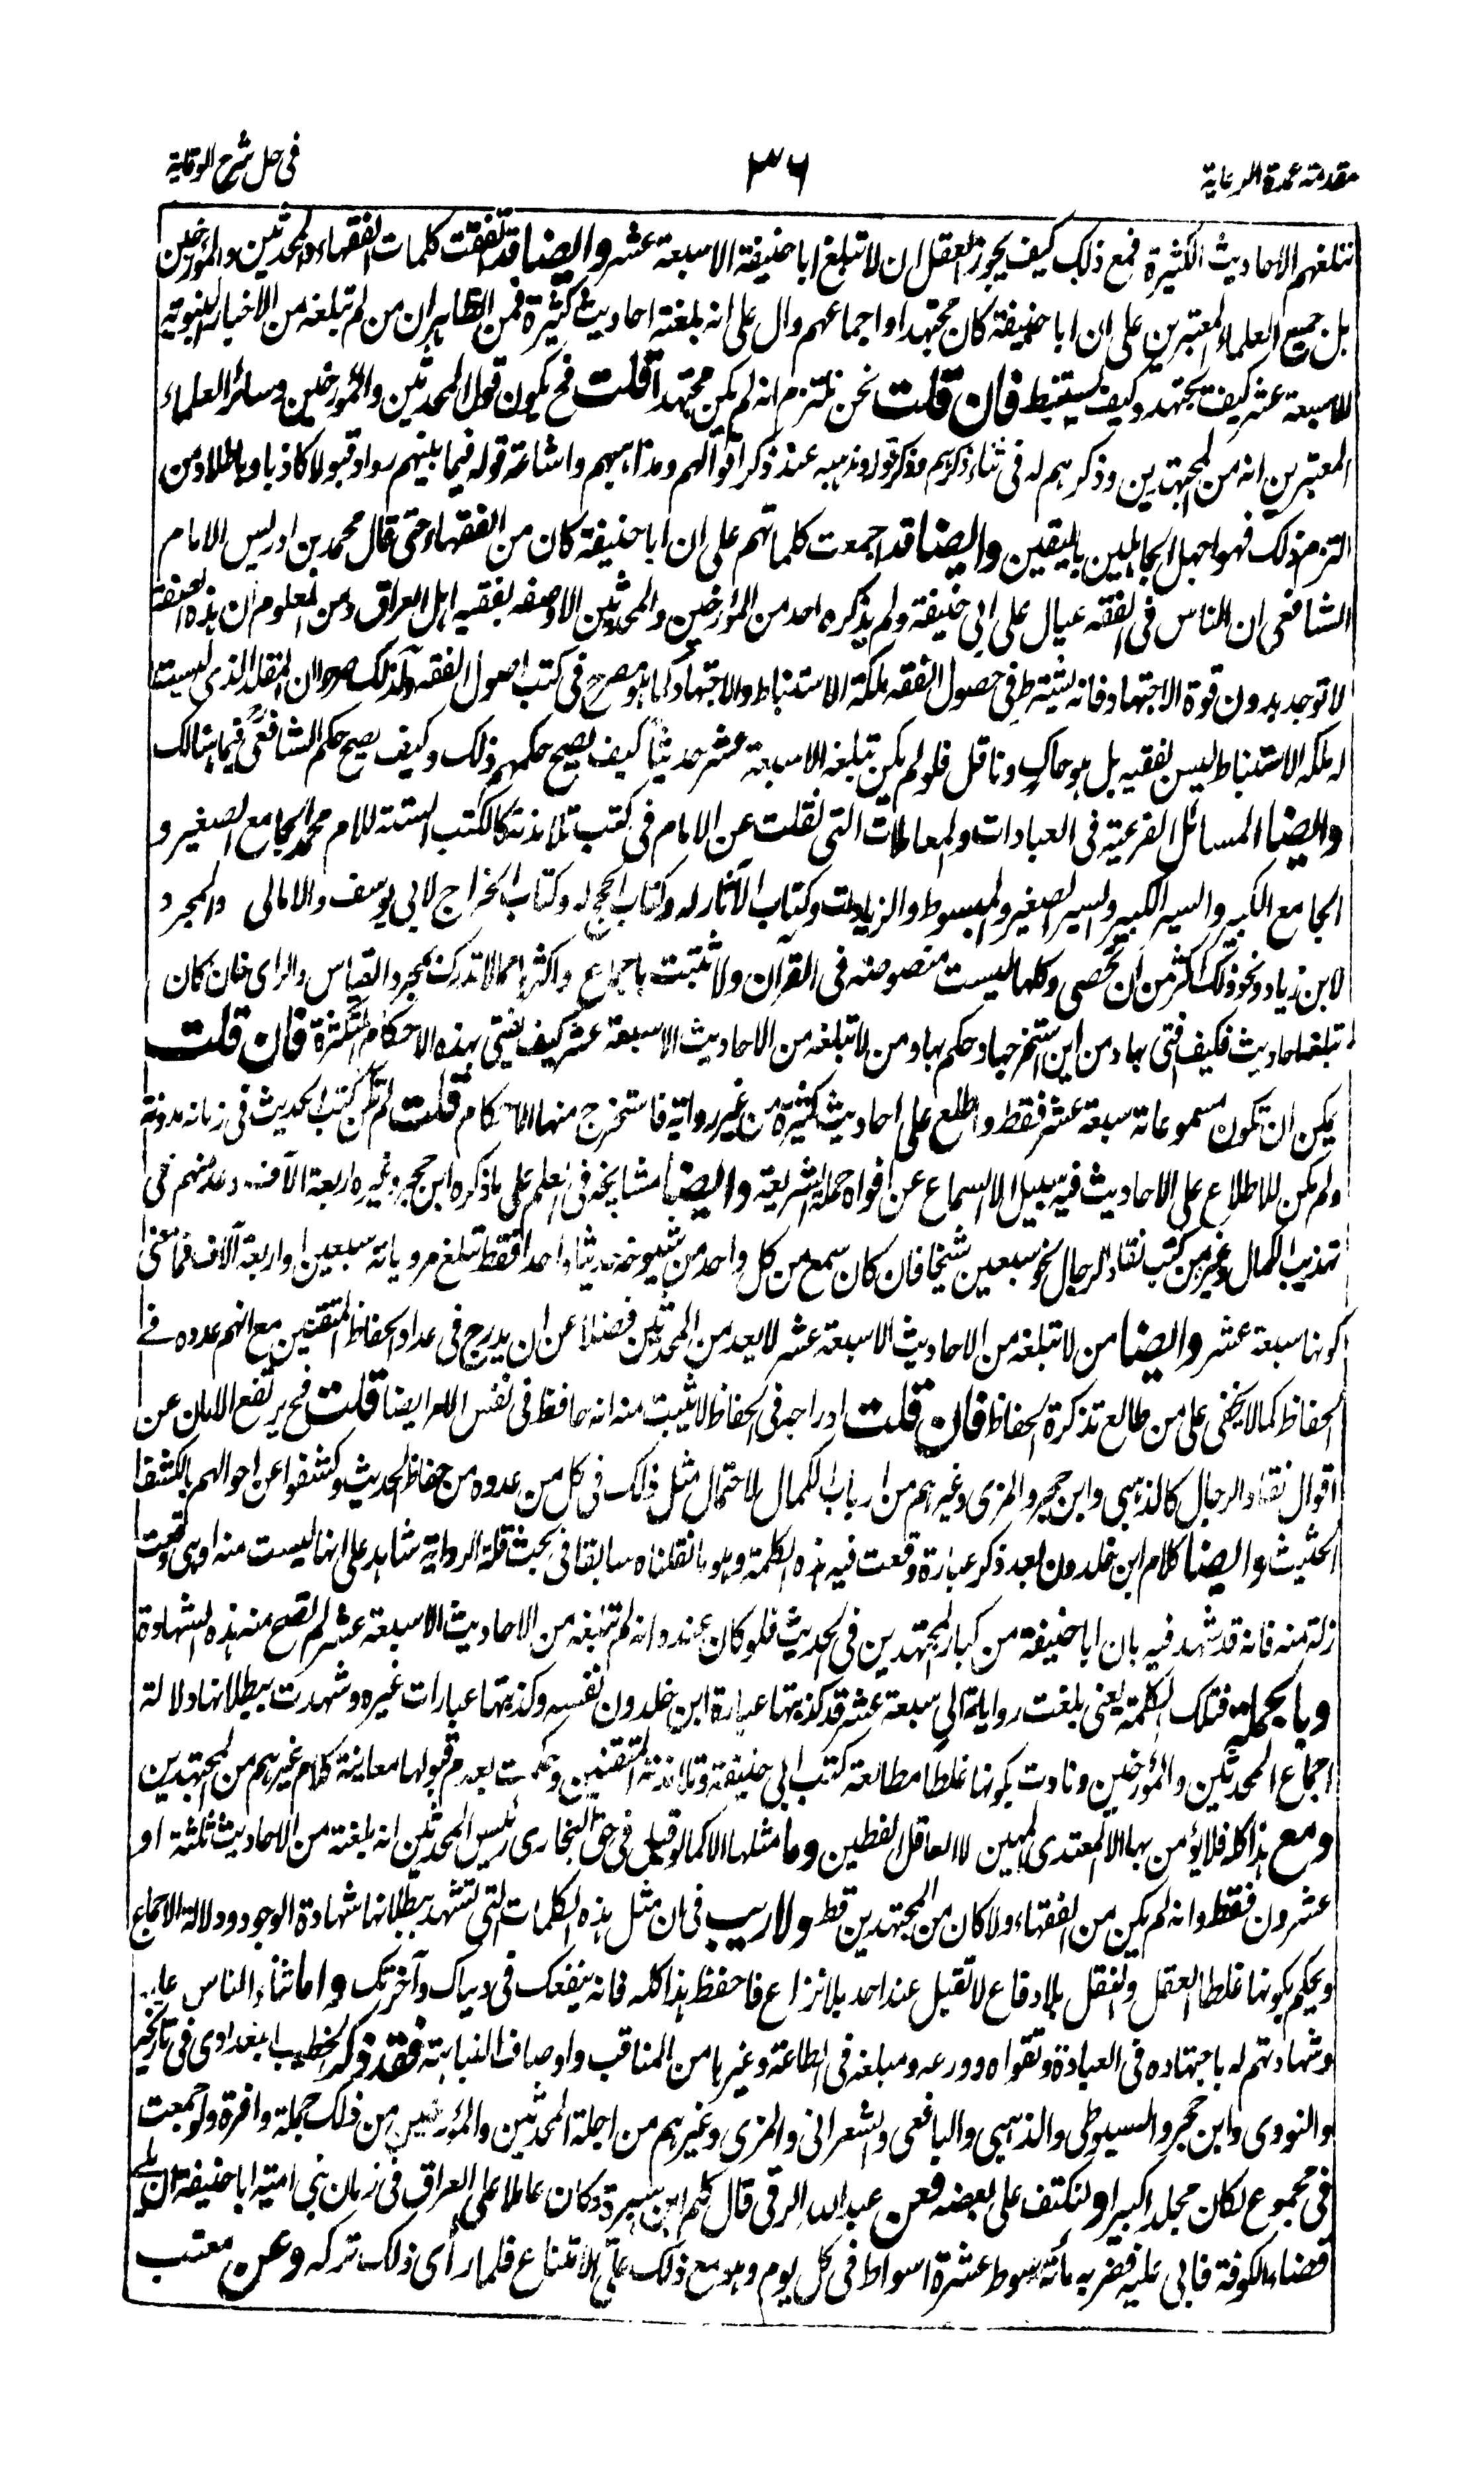 مقدمة عمدة الرعاية
٣٦
فى حل شرح الوقاية
تبلغهم الاحاديث الكثيرة فمع ذلك كيف يجوز العقل ان لا تبلغ ابا حنيفة الا سبعة عشر وايضا قد اتفقت كلمات الفقهاء والمحدثين والمؤرخين
بل جميع العلماء المعتبرين على ان ابا حنيفة كان مجتهدا واجماعهم دال على انه بلغته احاديث كثيرة فمن الظاهر ان من لم تبلغه من الاخبار النبوية
الا سبعة عشر كيف يجتهد وكيف يستنبط فان قلت نحن نلتزم انه لم يكن مجتهدا قلت فح يكون قول المحدثين والمؤرخين وسائر العلماء
المعتبرين انه من المجتهدين وذكرهم له فى اثناء ذكرهم وذكر قوله ومذهبه عند ذكر اقوالهم ومذاهبهم واشاعة قوله فيما بينهم ردا وقبولا كاذبا وباطلا ومن
التزم ذلك فهو اجهل الجاهلين باليقين وايضا قد اجمعت كلماتهم على ان ابا حنيفة كان من الفقهاء حتى قال محمد بن ادريس الامام
الشافعى ان الناس فى الفقه عيال على ابى حنيفة ولم يذكره احد من المؤرخين والمحدثين الا وصفه بفقيه اهل العراق ومن المعلوم ان هذه الصفة
لا توجد بدون قوة الاجتهاد فانه يشترط فى حصول الفقه ملكة الاستنباط والاجتهاد كما هو مصرح فى كتب اصول الفقه ولذلك صرحوا ان المقلد الذى ليست
له ملكة الاستنباط ليس بفقيه بل هو حاك وناقل فلو لم يكن تبلغه الا سبعة عشر حديثا كيف يصح حكمهم ذلك وكيف يصح حكم الشافعىؒ فيما هنالك
وايضا المسائل الفرعية فى العبادات والمعاملات التى نقلت عن الامام فى كتب تلامذته كالكتب الستة للامام محمد الجامع الصغير و
الجامع الكبير والسير الكبير والسير الصغير والمبسوط والزيادات وكتاب الآثار له وكتاب الحجج له وكتاب الخراج لابى يوسف والامالى والمجرد
لابن زياد ونحو ذلك اكثر من ان تحصى وكلها ليست منصوصة فى القرآن ولا ثبتت باجماع واكثرها مما لا تدرك بمجرد القياس والراى فان كان
لم تبلغه احاديث فكيف افتى بها ومن اين استخرجها وحكم بها ومن لا تبلغه من الاحاديث الا سبعة عشر كيف يفتى بهذه الاحكام المتكثرة فان قلت
يمكن ان تكون مسموعاته سبعة عشر فقط واطلع على احاديث كثيرة من غير رواية فاستخرج منها الاحكام قلت لم تكن كتب الحديث فى زمانه مدونة
ولم يكن للاطلاع على الاحاديث فيه سبيل الا السماع عن افواه حملة الشريعة وايضا مشايخه فى العلم على ما ذكره ابن حجر وغيره اربعة الآف وعد منهم فى
تهذيب الكمال وغيره من كتب نقاد الرجال نحو سبعين شيخا فان كان سمع من كل واحد من شيوخه حديثا واحدا فقط تبلغ مروياته سبعين او اربعة آلاف فما معنى
كونها سبعة عشر وايضا من لا تبلغه من الاحاديث الا سبعة عشر لا يعد من المحدثين فضلا عن ان يدرج فى عداد الحفاظ المتقنين مع انهم عدوه فى
الحفاظ كما لا يخفى على من طالع تذكرة الحفاظ فان قلت ادراجه فى الحفاظ لا يثبت منه انه حافظ فى نفس الامر ايضا قلت فح يرتفع الامان عن
اقوال نقاد الرجال كالذهبى وابن حجر والمزى وغيرهم من ارباب الكمال لاحتمال مثل ذلك فى كل من عدوه من حفاظ الحديث وكشفوا عن احوالهم بالكشف
الحثيث وايضا كلام ابن خلدون بعد ذكر عبارة وقعت فيه هذه الكلمة وهو ما نقلناه سابقا فى بحث قلة الرواية شاهد على انها ليست منه او هى وقعت
زلة منه فانه قد شهد فيه بان ابا حنيفة من كبار المجتهدين فى الحديث فلو كان عنده انه لم تبلغه من الاحاديث الا سبعة عشر لم تصح منه هذه الشهادة
وبالجملة فتلك الكلمة يعنى بلغت رواياته الى سبعة عشر قد كذبتها عبارة ابن خلدون نفسه وكذبتها عبارات غيره وشهدت ببطلانها دلالة
اجماع المحدثين والمؤرخين ونادت بكونها غلطا مطالعة كتب ابى حنيفة وتلامذته المتقنين وحكمت بعدم قبولها معاينة كلام غيرهم من المجتهدين
ومع هذا كله فلا يؤمن بها الا المعتدى المهين لا العاقل الفطين وما مثلها الا كما لو قيل فى حق البخارى رئيس المحدثين انه بلغته من الاحاديث ثلثة او
عشرون فقط وانه لم يكن من الفقهاء ولا كان من المجتهدين قط ولا ريب فى ان مثل هذه الكلمات التى تشهد ببطلانها شهادة الوجود ودلالة الاجماع
ويحكم بكونها غلطا العقل والنقل بلا دفاع لا تقبل عند احد بلا نزاع فاحفظ هذا كله فانه ينفعك فى دنياك وآخرتك واما ثناء الناس عليه
وشهادتهم له باجتهاده فى العبادة وتقواه وورعه ومبلغه فى الطاعة وغيرها من المناقب واوصاف النباهة فقد ذكره الخطيب البغدادى فى تاريخه
والنووى وابن حجر والسيوطى والذهبى واليافعى والشعرانى والمزى وغيرهم من اجلة المحدثين والمؤرخين من ذلك جملة وافرة ولو جمعت
فى مجموع لكان مجلدا كبيرا ولنكتف على بعضه فعن عبد الله الرقى قال كلم ابن هبيرة وكان عاملا على العراق فى زمان بنى امية ابا حنيفة ان يلى
قضاء الكوفة فابى عليه فضربه مائة سوط عشرة اسواط فى كل يوم وهو مع ذلك على الامتناع فلما رأى ذلك تركه وعن معتب